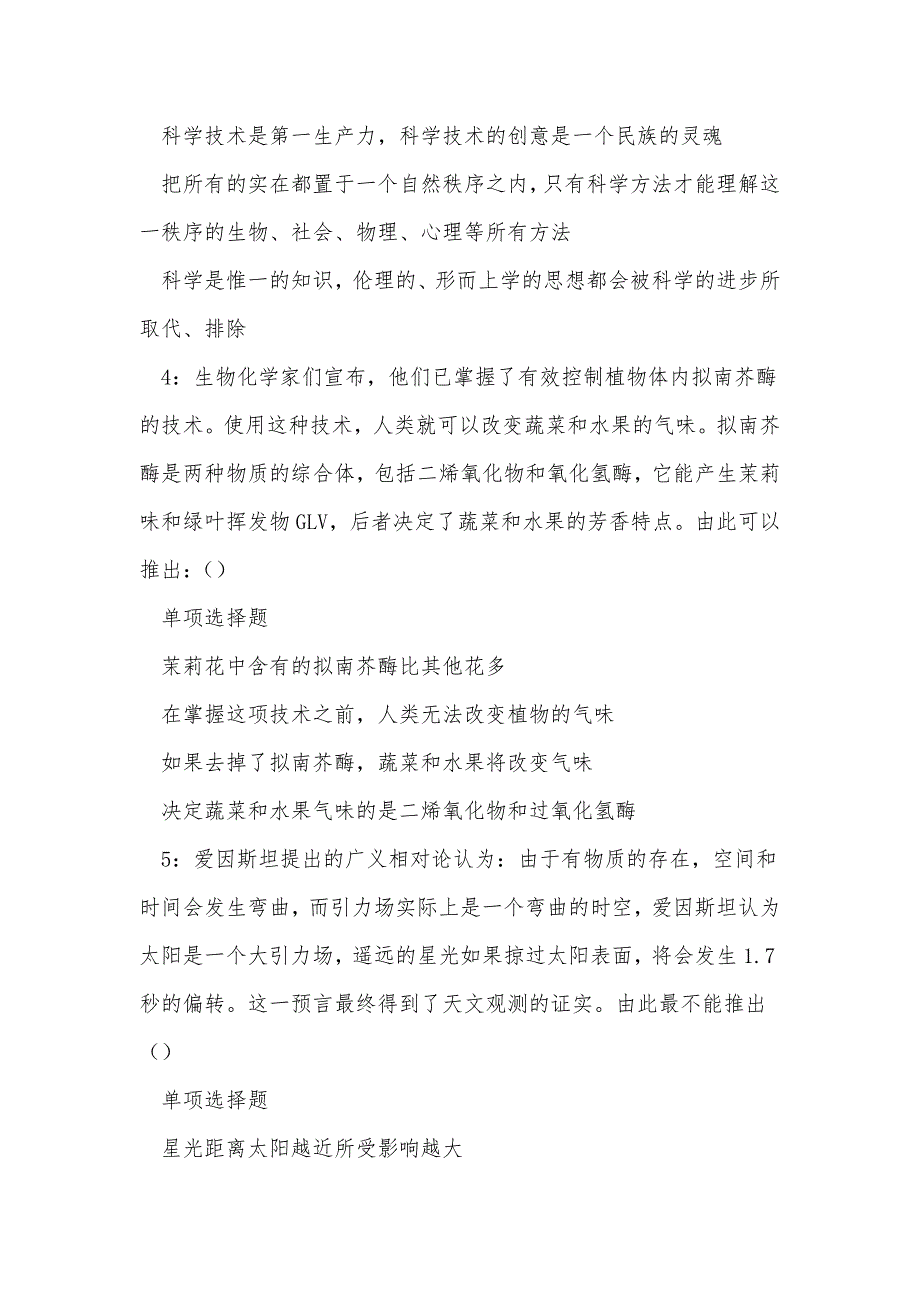 科学技术是第一生产力，科学技术的创意是一个民族的灵魂
把所有的实在都置于一个自然秩序之内，只有科学方法才能理解这
一秩序的生物、社会、物理、心理等所有方法
科学是惟一的知识，伦理的、形而上学的思想都会被科学的进步所
取代、排除
4：生物化学家们宣布，他们已掌握了有效控制植物体内拟南芥酶
的技术。使用这种技术，人类就可以改变蔬菜和水果的气味。拟南芥
酶是两种物质的综合体，包括二烯氧化物和氧化氢酶，它能产生茉莉
味和绿叶挥发物 GLV，后者决定了蔬菜和水果的芳香特点。由此可以
推出：（）
单项选择题
茉莉花中含有的拟南芥酶比其他花多
在掌握这项技术之前，人类无法改变植物的气味
如果去掉了拟南芥酶，蔬菜和水果将改变气味
决定蔬菜和水果气味的是二烯氧化物和过氧化氢酶
5：爱因斯坦提出的广义相对论认为：由于有物质的存在，空间和
时间会发生弯曲，而引力场实际上是一个弯曲的时空，爱因斯坦认为
太阳是一个大引力场，遥远的星光如果掠过太阳表面，将会发生 1.7
秒的偏转。这一预言最终得到了天文观测的证实。由此最不能推出
（）
单项选择题
星光距离太阳越近所受影响越大